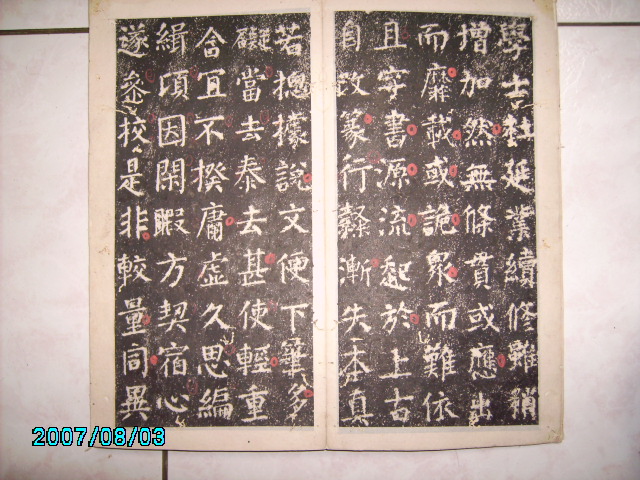 學士杜延業續修雖頗
增加然無條貫或應出
而靡載或詭衆而難依
且字書源流起於上古
自改篆行隸漸失本真
若摠據說文便下筆多
礙當去泰去甚使輕重
合宜不揆庸虛久思編
緝頃因閑暇方契宿心
遂參校是非較量同異
2007/08/03